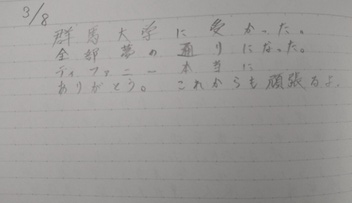 3/8
群馬大学に受かった。
全部夢の通りになった。
ティファニー本当に
ありがとう。これからも頑張るよ。